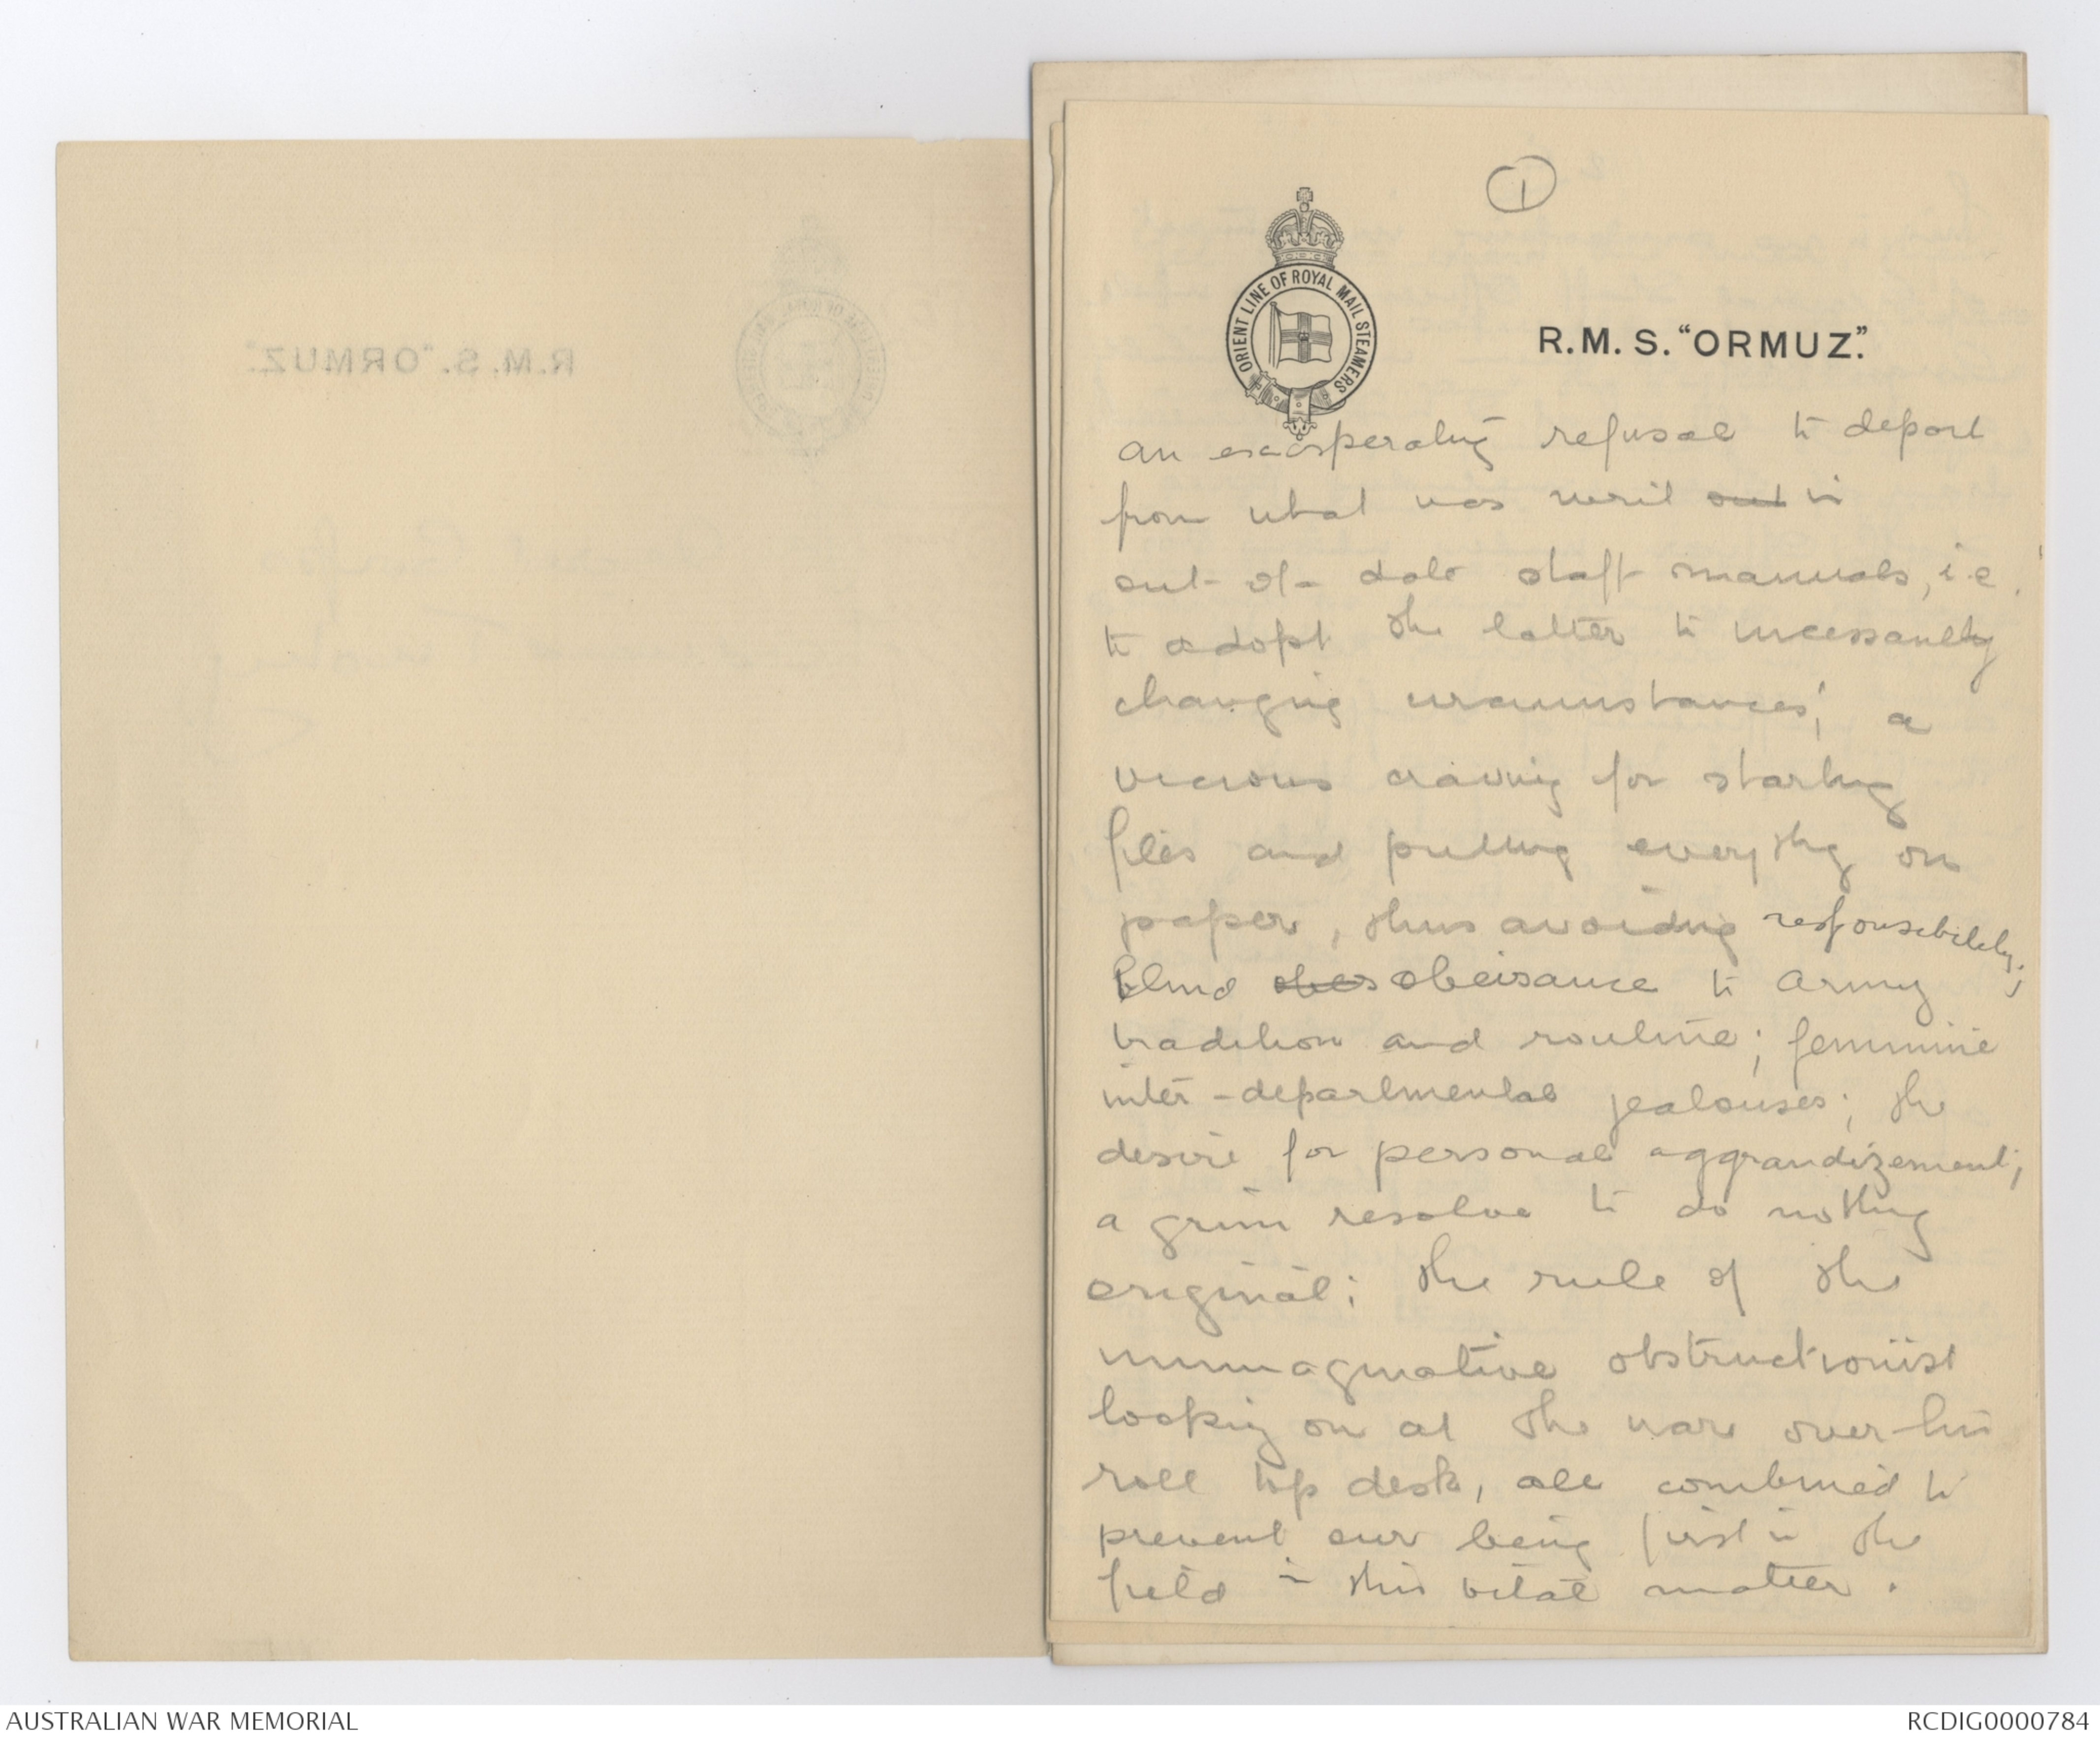 ①
ORIENT LINE OF ROYAL MAIL STEAMERS
R.M.S. "ORMUZ."
an exasperating refusal to depart
from what was writ out in
out-of-date staff manuals, i.e.
to adopt the latter to incessantly
changing circumstances; a
vicious craving for starting
files and putting everything on
paper, thus avoiding responsibility;
blind obes obeisance to army
tradition and routine; feminine
inter-departmental jealouses; the
desire for personal aggrandizement;
a grim resolve to do nothing
original; the rule of the
unimaginative obstructionist
looking on at the war over his
roll top desk, all combined to
prevent our being first in the
field in this vital matter.
R.M.S. "ORMUZ."
AUSTRALIAN WAR MEMORIAL
RCDIG0000784